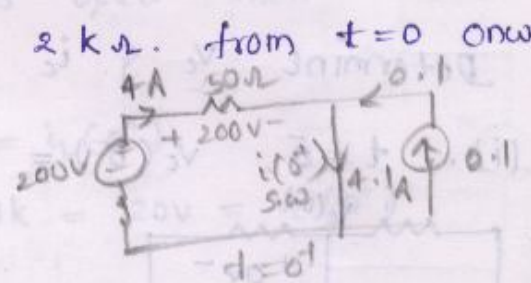 2 kΩ. from t=0 onw
4A 50Ω 0.1
+ 200V -
200V i(0⁺) 4.1A 0.1
s.w
t=0⁺